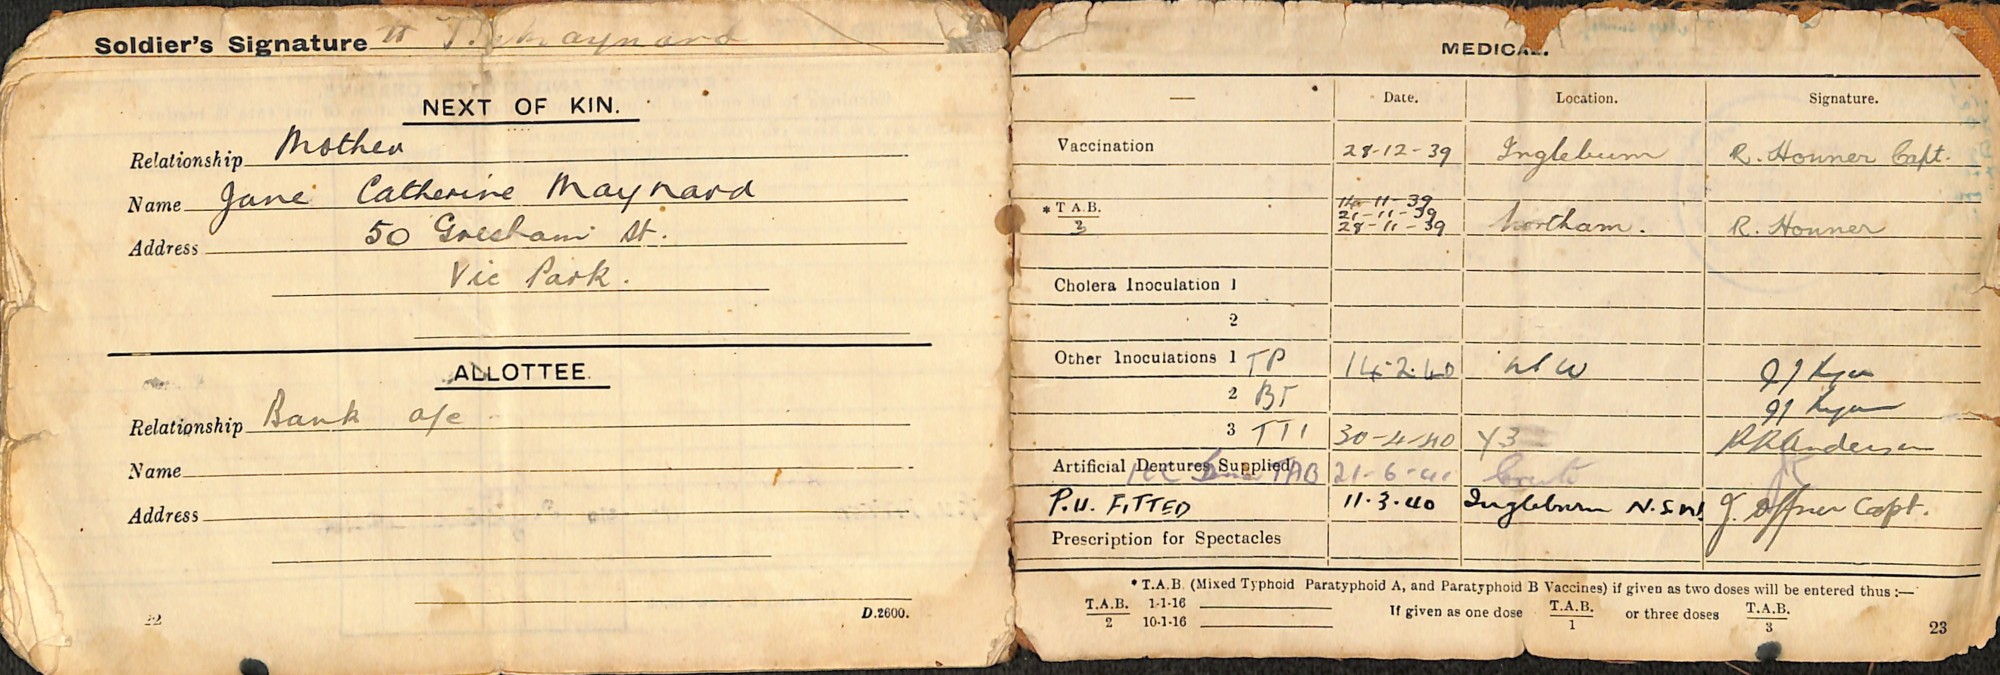 Soldier's Signature Maynard
NEXT OF KIN.
Relationship Mother
Name Jane Catherine Maynard
Address 50 Gresham St.
Vic Park.
ALLOTTEE.
Relationship Bank a/c
Name
Address
22
D.2600.
MEDICAL.
— Date. Location. Signature.
Vaccination 28-12-39 Ingleburn R. Honner Capt.
14-11-39
*T.A.B. 21-11-39 Northam. R. Honner
3 28-11-39
Cholera Inoculation 1
2
Other Inoculations 1 TP 14-2-40
2 BT
3 TT1 30-4-40 Y3 Anderson
Artificial Dentures Supplied TAB 21-6-41
P.U. FITTED 11.3.40 Ingleburn N.S.W. J. Offner Capt.
Prescription for Spectacles
*T.A.B. (Mixed Typhoid Paratyphoid A, and Paratyphoid B Vaccines) if given as two doses will be entered thus :—
T.A.B. 1-1-16 If given as one dose T.A.B. or three doses T.A.B.
2 10-1-16 1 3
23